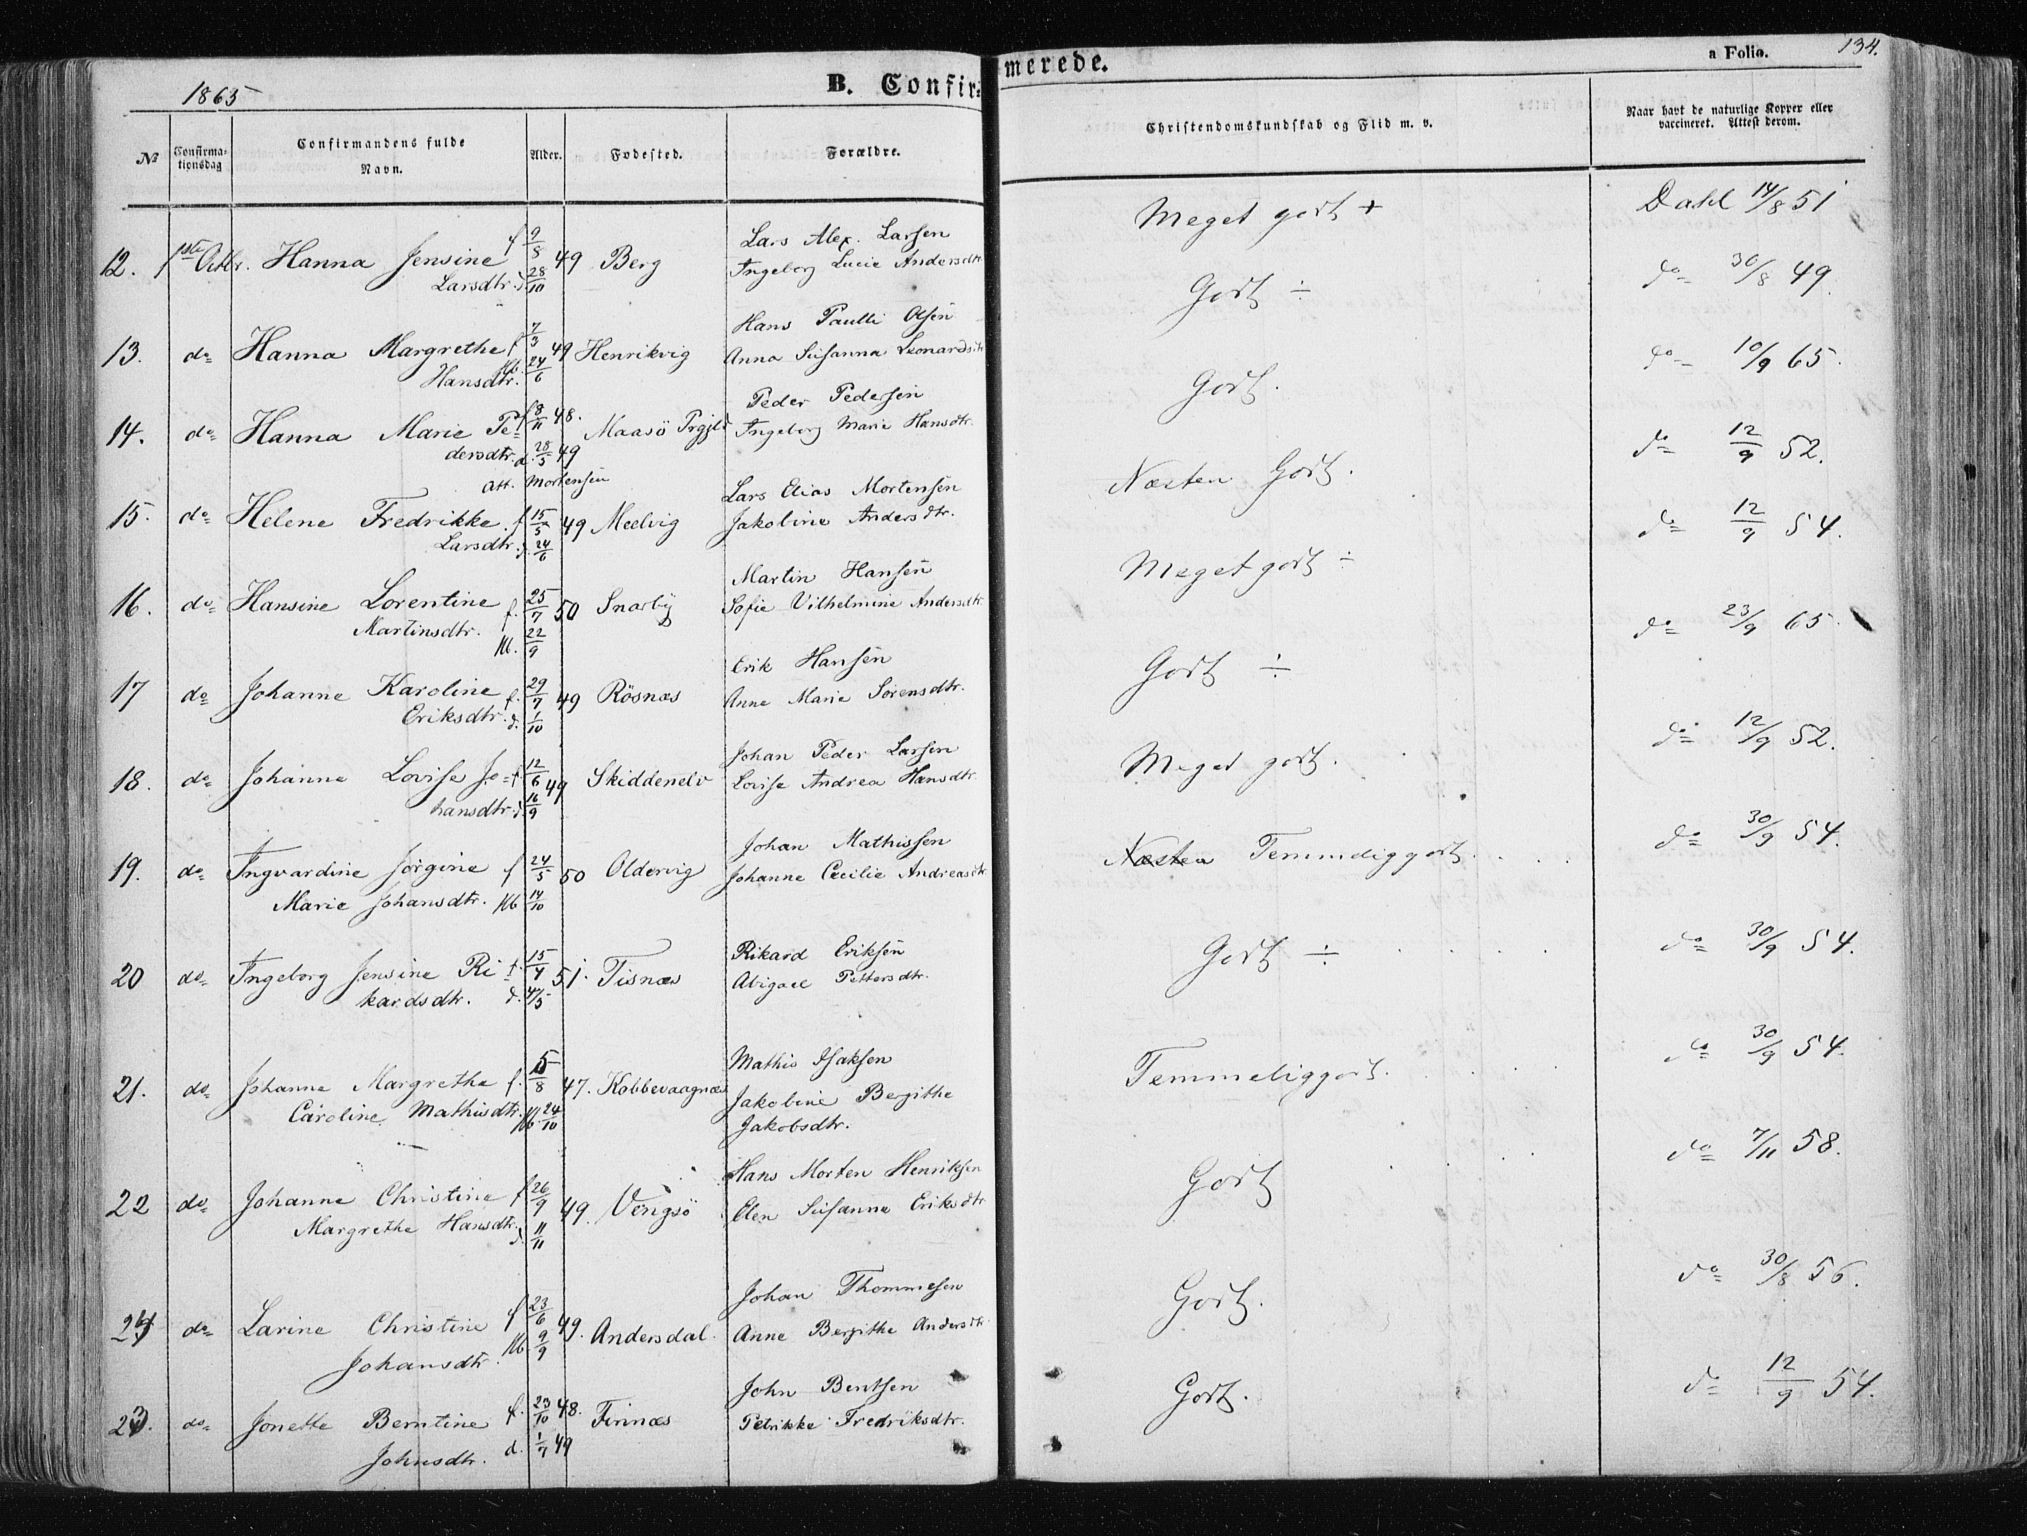 1865
B. Confirmerede.
a Folio. 134.
№ Confirmationsdag Confirmandens fulde Navn. Alder. Fødested. Forældre. Christendomskundskab og Flid m. v. Naar havt de naturlige Kopper eller vaccineret. Attest derom.
Lars Alex. Larsen Meget godt + Dahl 14/8 51
12. 1ste Octbr. Hanna Jensine f 9/8 49 Berg Ingeborg Lucie Andersdtr.
Larsdtr. d. 28/10
Hans Paulli Olsen Godt ÷ do 30/8 49.
13. do Hanna Margrethe f 7/3 49 Henrikvig Anna Susanna Leonardsdtr
Hansdtr. Hb. 24/6
Peder Pedersen Godt. do 10/9 65.
14. do Hanna Marie Pe- f 8/11 48. Maasö Prgjld Ingeborg Marie Hansdtr.
dersdtr. d. 28/5 49
Att. Mortensen
Lars Elias Mortensen Næsten Godt. do 12/9 52.
15. do Helene Fredrikke f 15/5 49 Meelvig Jakobine Andersdtr.
Larsdtr. d. 24/6
Martin Hansen Meget godt ÷ do 12/9 54.
16. do Hansine Lorentine f. 25/7 50 Snarby Sofie Vilhelmine Andersdtr.
Martinsdtr. Hb. 22/9
Erik Hansen Godt ÷ do 23/9 65.
17 do Johanne Karoline f. 29/7 49 Rösnæs Anne Marie Sörensdtr.
Eriksdtr. d. 1/10
Johan Peder Larsen Meget godt. do 12/9 52.
18. do Johanne Lovise Jo- f 12/6 49 Skiddenelv Lovise Andrea Hansdtr.
hansdtr. d. 16/9
Johan Mathissen Næsten Temmeliggodt. do 30/9 54.
19. do Ingvardine Jörgine f 24/5 50 Oldervig Johanne Cecilie Andreasdtr.
Marie Johansdtr. Hb 14/10
Rikard Eriksen Godt ÷ do 30/9 54.
20 do Ingeborg Jensine Ri- f. 15/4 51. Tisnæs Abigael Pettersdtr.
kardsdtr. d. 4/5
Mathis Isaksen Temmeliggodt. do 30/9 54.
21. do Johanne Margrethe f. 5/8 47. Kobbevaagnæs Jakobine Bergithe
Caroline Mathisdtr. Hb. 24/10 Jakobsdtr.
Hans Morten Henriksen Godt do 7/11 58.
22 do Johanne Christine f 26/9 49. Vengsö Elen Susanna Eriksdtr
Margrethe Hansdtr. d. 11/11
Johan Thommesen Godt. do 30/8 56.
24 do Larine Christine f 23/6 49. Andersdal. Anne Bergithe Andersdtr
Johansdtr. Hb 9/9
John Bentsen Godt. do 12/9 54.
23. do Jonette Berntine f. 23/10 48. Finnæs Petrikke Fredriksdtr.
Johnsdtr. d. 1/7 49